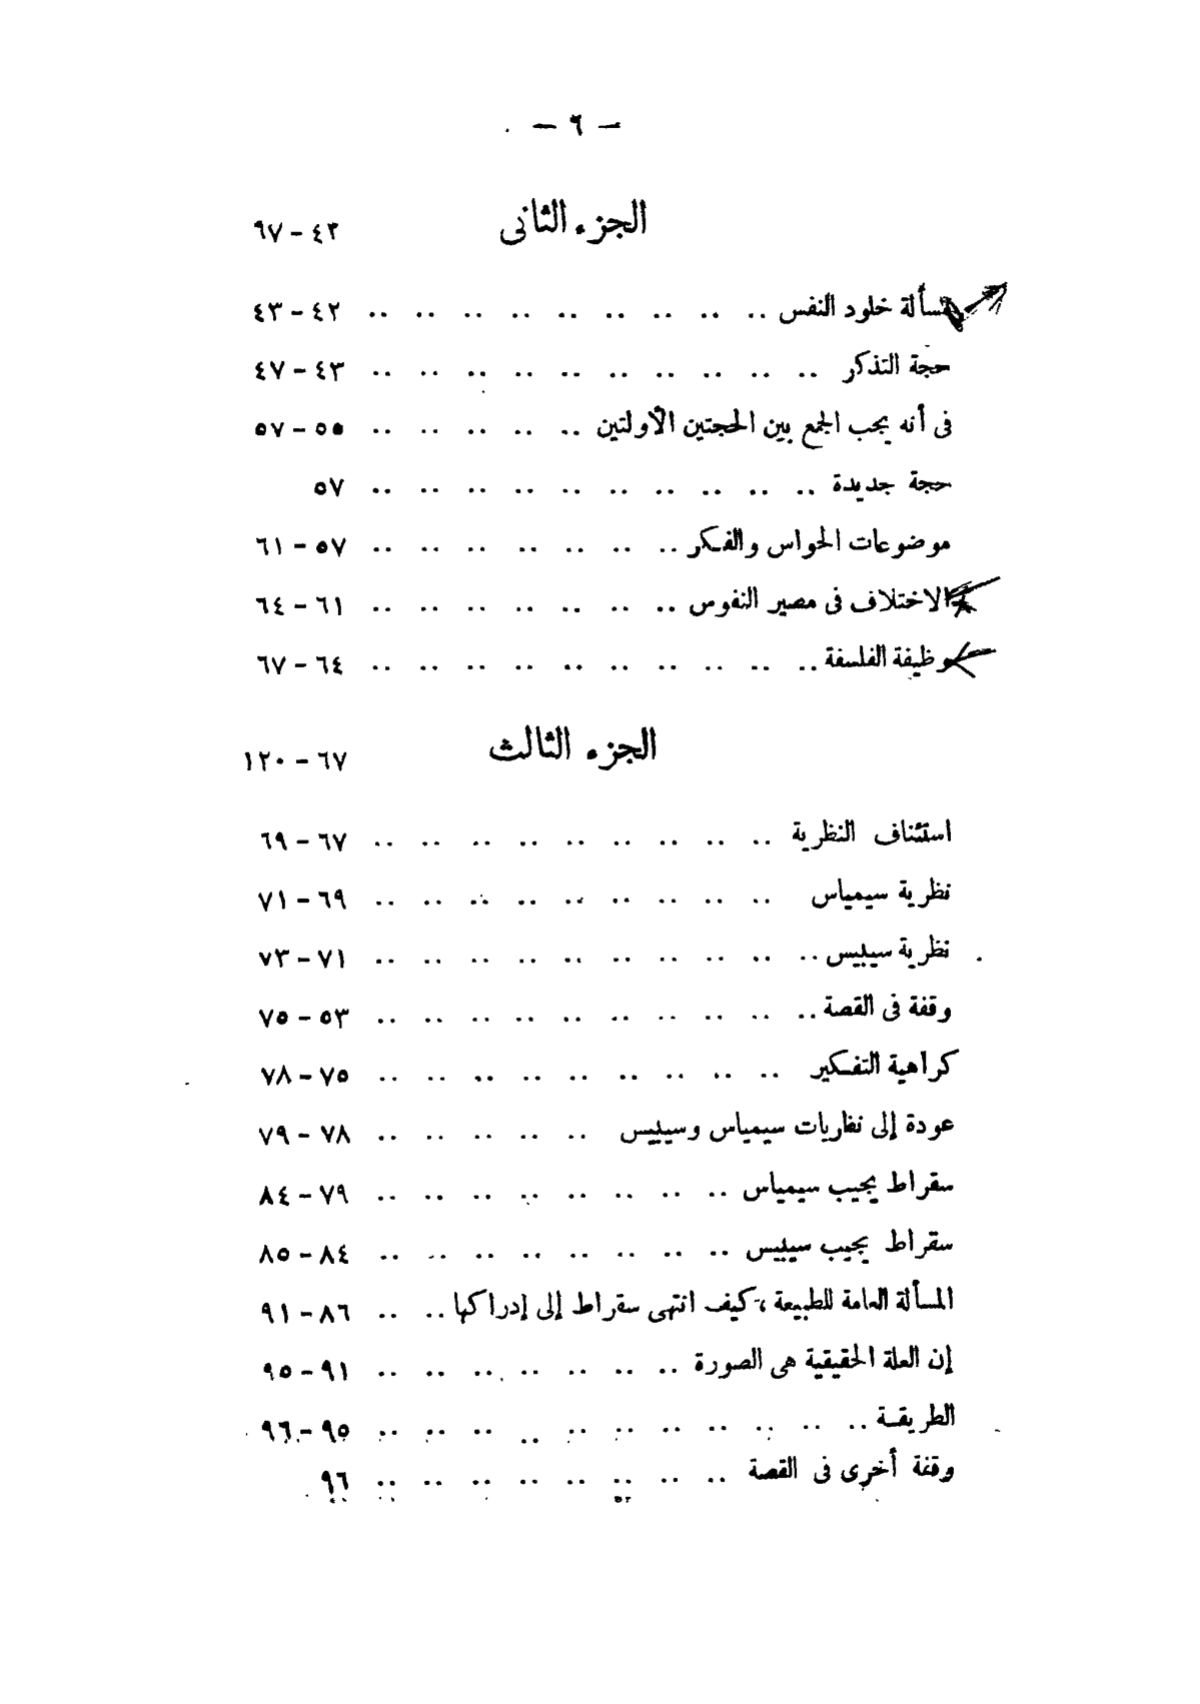 — ٦ —
الجزء الثانى ٤٢ - ٦٧
مسألة خلود النفس .. .. .. .. .. .. .. .. .. ٤٢ - ٤٣
حجة التذكر .. .. .. .. .. .. .. .. .. .. ٤٣ - ٤٧
فى أنه يجب الجمع بين الحجتين الأولتين .. .. .. .. .. ٥٥ - ٥٧
حجة جديدة .. .. .. .. .. .. .. .. .. .. ٥٧
موضوعات الحواس والفكر .. .. .. .. .. .. .. ٥٧ - ٦١
الاختلاف فى مصير النفوس .. .. .. .. .. .. .. ٦١ - ٦٤
وظيفة الفلسفة .. .. .. .. .. .. .. .. .. .. ٦٤ - ٦٧
الجزء الثالث ٦٧ - ١٢٠
استئناف النظرية .. .. .. .. .. .. .. .. .. ٦٧ - ٦٩
نظرية سيمياس .. .. .. .. .. .. .. .. .. ٦٩ - ٧١
نظرية سيبيس .. .. .. .. .. .. .. .. .. .. ٧١ - ٧٣
وقفة فى القصة .. .. .. .. .. .. .. .. .. .. ٥٣ - ٧٥
كراهية التفكير .. .. .. .. .. .. .. .. .. ٧٥ - ٧٨
عودة إلى نظاريات سيمياس وسيبيس .. .. .. .. .. ٧٨ - ٧٩
سقراط يجيب سيمياس .. .. .. .. .. .. .. .. ٧٩ - ٨٤
سقراط يجيب سيبيس .. .. .. .. .. .. .. .. ٨٤ - ٨٥
المسألة العامة للطبيعة ، كيف انتهى سقراط إلى إدراكها .. .. ٨٦ - ٩١
إن العلة الحقيقية هى الصورة .. .. .. .. .. .. .. ٩١ - ٩٥
الطريقة .. .. .. .. .. .. .. .. .. .. .. ٩٥ - ٩٦
وقفة أخرى فى القصة .. .. .. .. .. .. .. .. ٩٦